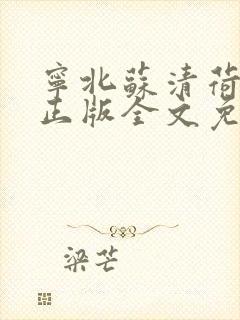 寧北蘇清荷
正版全文免
梁芒